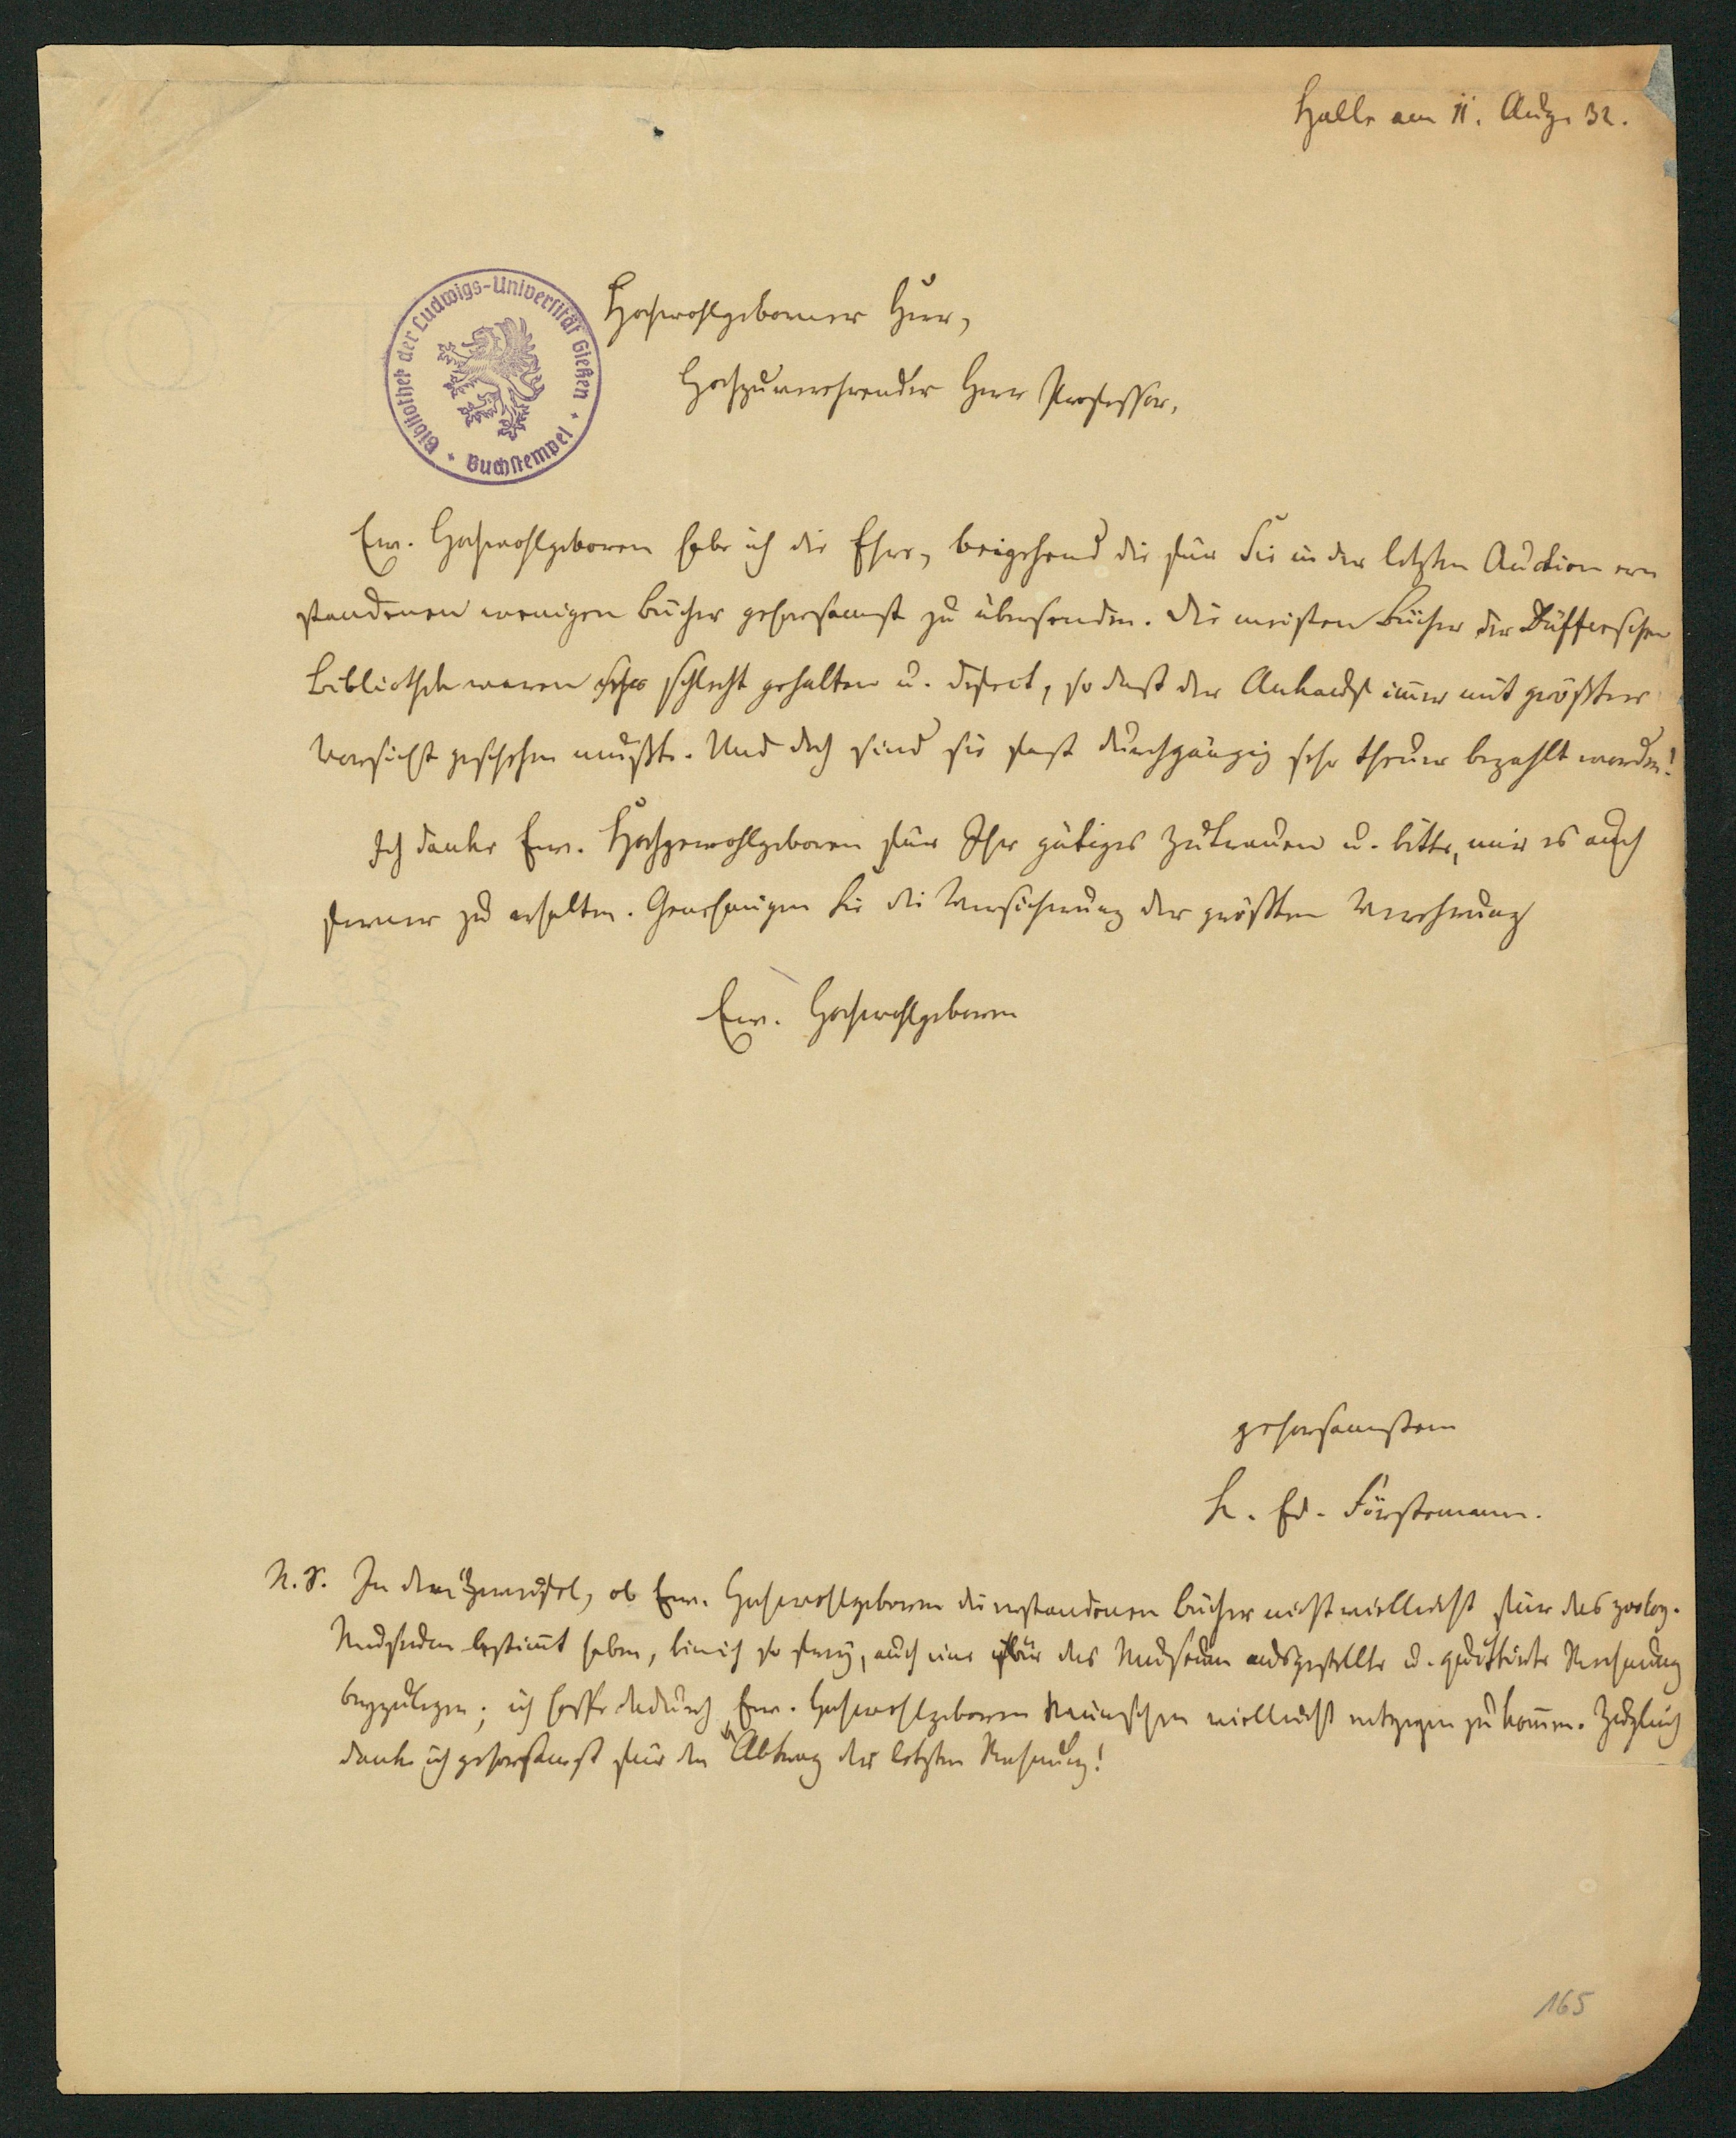 Halle am 11. Aug. 32.
Bibliothek der Ludwigs-Universität Gießen
Buchstempel
Hochwohlgeborner Herr,
Hochzuverehrender Herr Professor,
Ew. Hochwohlgeboren habe ich die Ehre, beigehend die für Sie in der letzten Auction er
standenen wenigen Bücher gehorsamst zu übersenden. Die meisten Bücher der Düfferschen
Bibliothek waren schlecht gehalten u. defect, so daß der Ankauf im̅er mit größter
Vorsicht geschehen mußte. Und doch sind sie fast durchgängig sehr theuer bezahlt worden!
Ich danke Ew. Hochgewohlgeboren für Ihr gütiges Zutrauen u. bitte, mir es auch
ferner zu erhalten. Genehmigen Sie die Versicherung der größten Verehrung
Ew. Hochwohlgeboren
gehorsamstem
K. Ed. Förstemann.
N. S. In dem Zweifel, ob Ew. Hochwohlgeboren die erstandenen Bücher nicht vielleicht für das zoolog.
Museum bestim̅t haben, bin ich so frey, auch eine für das Museum ausgestellte u. quittirte Rechnung
beyzulegen; ich hoffe dadurch Ew. Hochwohlgeboren Wünschen vielleicht entgegen zu kom̅en. Zugleich
danke ich gehorsamst für den Abtrag der letzten Rechnung!
165